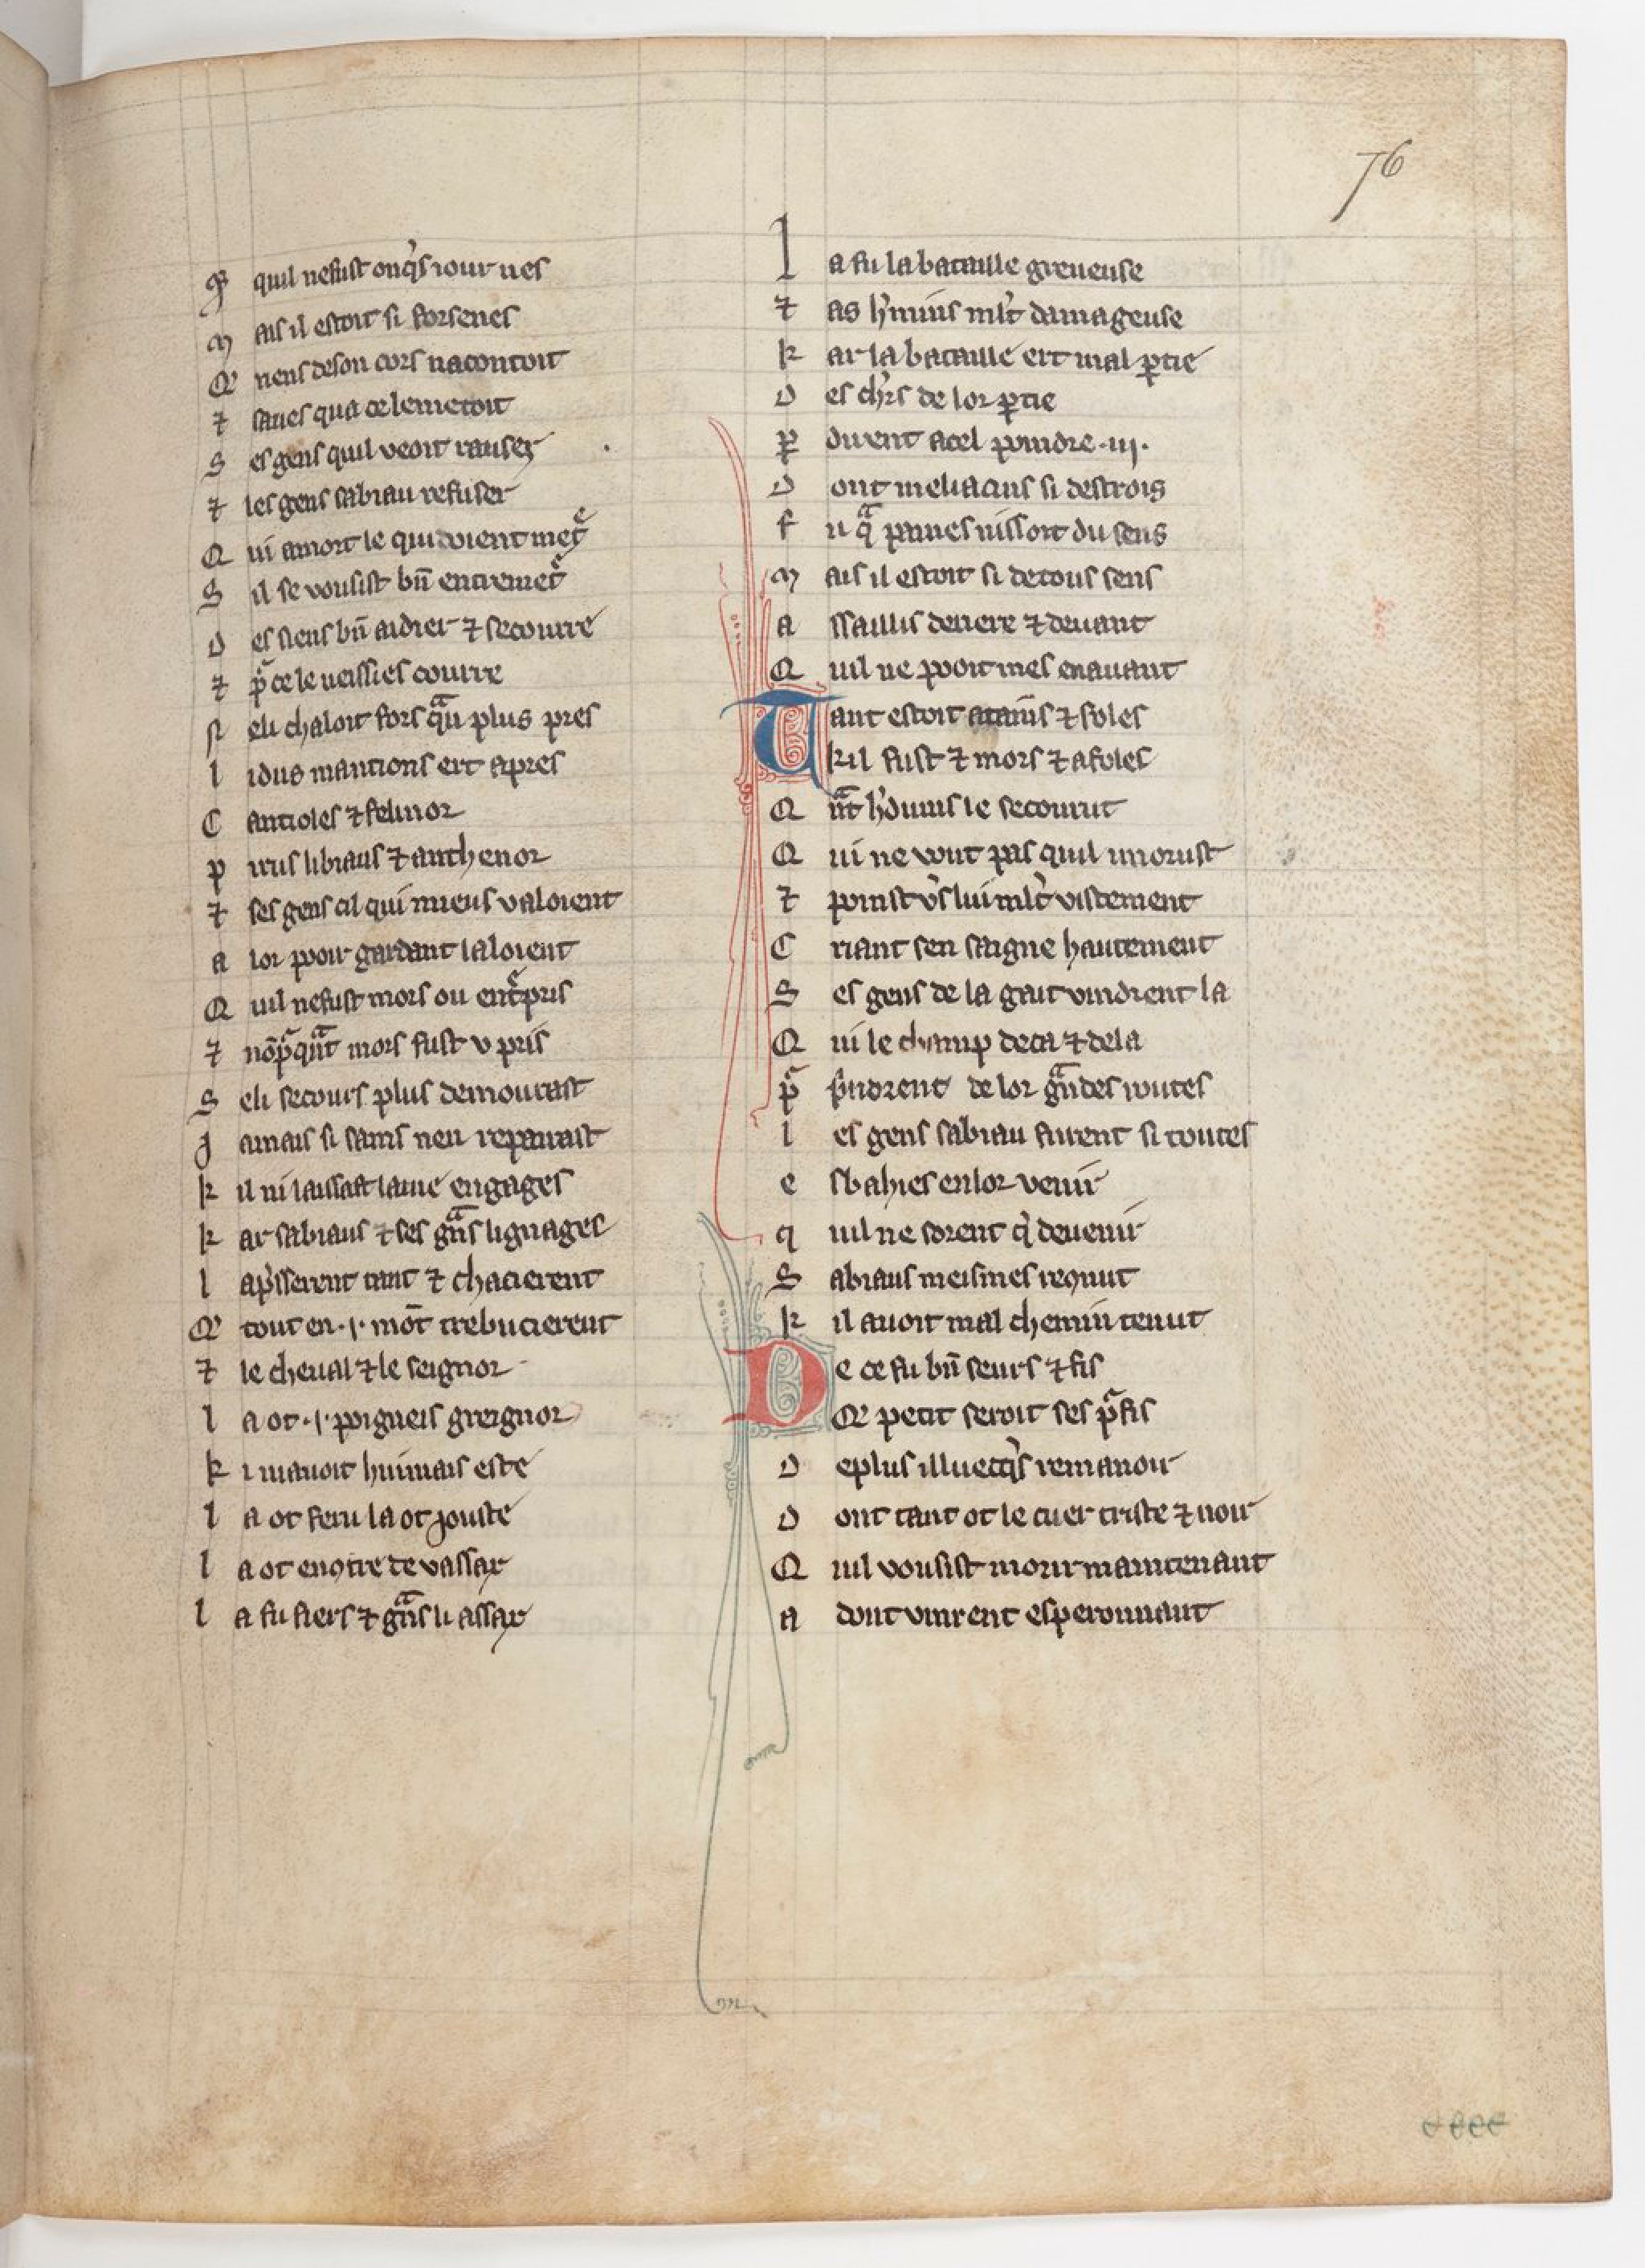 76
Qͥ quil nefust onqͥs iour nes
M ais il estoit si forsenes
Qͤ riens deson cors nacontoit
⁊ saues qua ce le metoit
S es gens quil veoit rauser
⁊ les gens sabrau refuser
Q ui amort le quidoient metͤ
S il se vousist bn̄ entremetͤ
D es siens bn̄ aidier ⁊ secourre
⁊ pͬ ce le ueissies courre
N e li chaloit fors qͣn plus pres
L idus mantions ert apres
C antioles ⁊ felinor
P irus libiaus ⁊ anthenor
⁊ ses gens cil qui mieus valoient
A lor pooir gardant laloient
Q uil nefust mors ou entͤpris
⁊ nōpͬqͣnt mors fust v pris
S e li secours plus demourast
J amais si sains nen repairast
K il ni laissast lame engages
K ar sabraus ⁊ ses gͣns lignages
L apͥsserent tant ⁊ chacierent
Qͤ tout en .i. mōt trebucierent
⁊ le cheual ⁊ le seignor
L a ot .i. poigneis greignor
K i nauoit huimais este
L a ot feru la ot jouste
L a ot enqtre de vassax
L a fu fiers ⁊ gͣns li assax
L a fu la bataille greueuse
⁊ as hͬmins ml̄t damageuse
K ar la bataille ert mal ꝑtie
D es chͬrs de lor ꝑtie
Ꝑ dirent acel poindre .iij.
D ont meliacins si destrois
F u qͣ paines nissoit du sens
M ais il estoit si detous sens
A ssaillis deriere ⁊ deuant
Q uil ne pooit mes enauant
Tant estoit atains ⁊ foles
kil fust ⁊ mors ⁊ afoles
Q nͣt hͬomins le secourut
Q ui ne vout pas quil morust
⁊ poinst vͬs lui ml̄t vistement
C riant sen saigne hautement
S es gens de la gait vindrent la
Q ui le champ deca ⁊ dela
Pͬ pͥndrent de lor gͣndes routes
L es gens sabrau furent si toutes
E sbahies enlor venir
Q uil ne sorent qͥ deuenir
S abraus meismes reqnut
K il auoit mal chemin tenut
De ce fu bn̄ seurs ⁊ fis
Qͤ petit seroit ses pͬfis
D eplus illuecqͥs remanoir
D ont tant ot le cuer triste ⁊ noir
Q uil vousist morir maintenant
A dont vinrent esperonnant